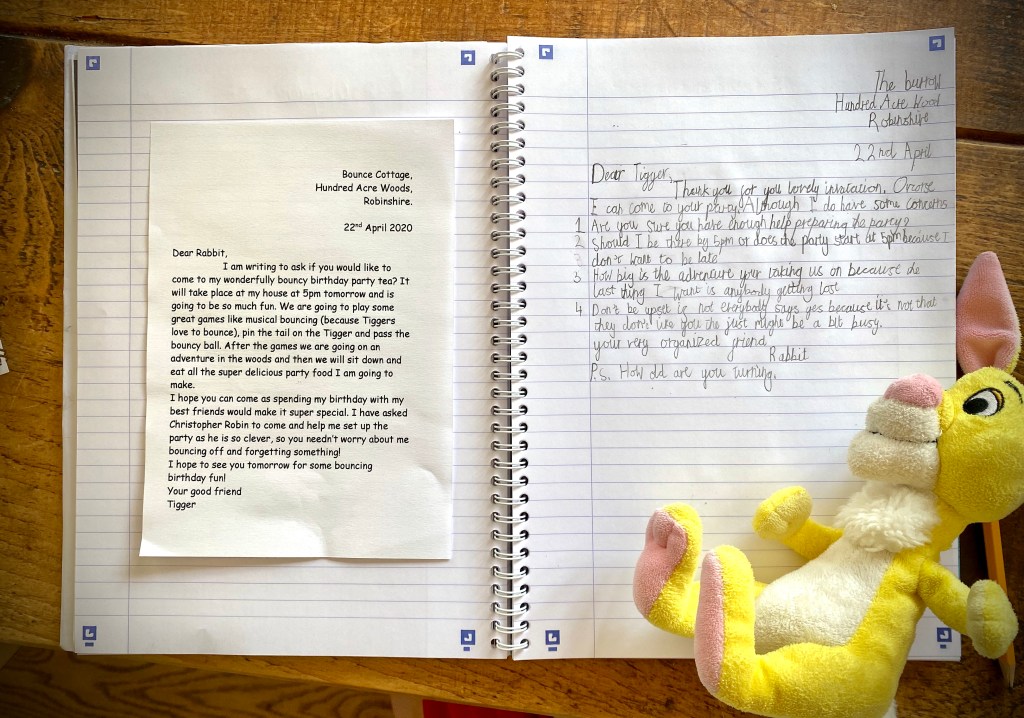 Bounce Cottage,
Hundred Acre Woods,
Robinshire.
22nd April 2020
Dear Rabbit,
I am writing to ask if you would like to
come to my wonderfully bouncy birthday party tea? It
will take place at my house at 5pm tomorrow and is
going to be so much fun. We are going to play some
great games like musical bouncing (because Tiggers
love to bounce), pin the tail on the Tigger and pass the
bouncy ball. After the games we are going on an
adventure in the woods and then we will sit down and
eat all the super delicious party food I am going to
make.
I hope you can come as spending my birthday with my
best friends would make it super special. I have asked
Christopher Robin to come and help me set up the
party as he is so clever, so you needn't worry about me
bouncing off and forgetting something!
I hope to see you tomorrow for some bouncing
birthday fun!
Your good friend
Tigger
The burrow
Hundred Acre Wood
Robinshire
22nd April
Dear Tigger,
Thank you for you lovely invatation. Ofcorse
I can come to your party. Although I do have some concerns
1 Are you sure you have enough help preparing the party?
2 Should I be there by 5pm or does the party start at 5pm because I
don't want to be late
3 How big is the adventure your taking us on because the
last thing I want is anybody getting lost
4 Don't be upset if not everybody says yes because it's not that
they don't like you the just might be a bit busy.
your very organized friend
Rabbit
P.s. How old are you turning.